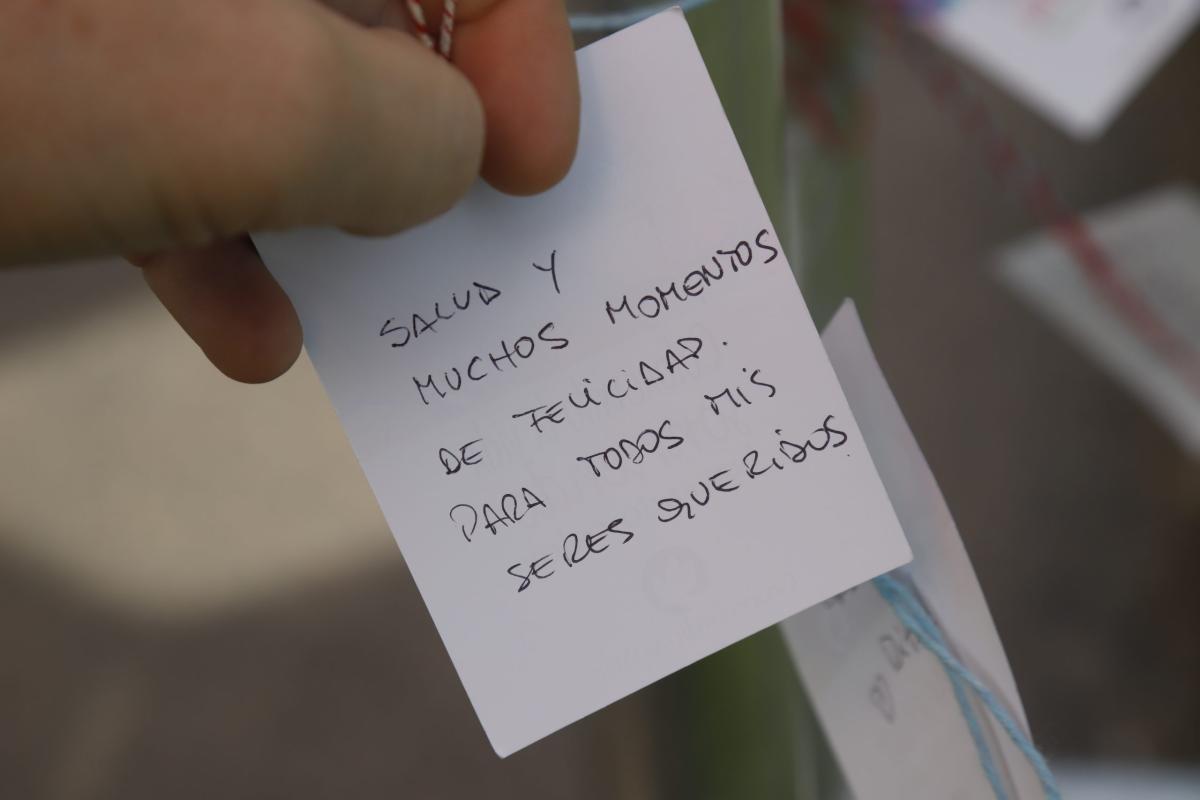 SALUD Y
MUCHOS MOMENTOS
DE FELICIDAD.
PARA TODOS MIS
SERES QUERIDOS.